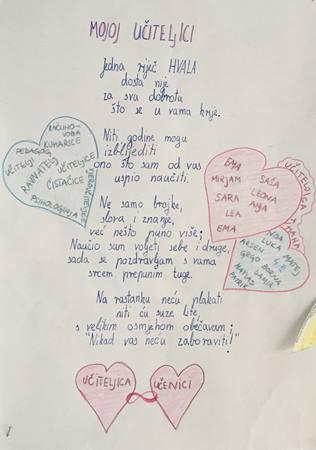 MOJOJ UČITELJICI
Jedna riječ HVALA
dosta nije
za svu dobrotu
što se u vama krije.
Niti godine mogu
izblijediti
ono što sam od vas
uspio naučiti.
Ne samo brojke,
slova i znanje,
već nešto puno više;
Naučio sam voljeti sebe i druge,
sada se pozdravljam s vama
srcem prepunim tuge.
Na rastanku neću plakati
niti ću suze liti,
s velikim osmjehom obećavam:
"Nikad vas neću zaboraviti!"
RAČUNO-
VOĐA
KUHARICE
PEDAGOG
UČITELJI
RAVNATELJ
UČITELJICE
ČISTAČICE
PSIHOLOGINJA
VJEROUČITELJICE
EMA
MIRJAM
SARA
LEA
EMA
SAŠA
LEONA
ANJA
UČITELJICA
LUKA
MATEJ
ARSEN
GRGO
BORNA
DAMIR
MATIJAS
PATRIK
4.B
UČITELJICA
UČENICI